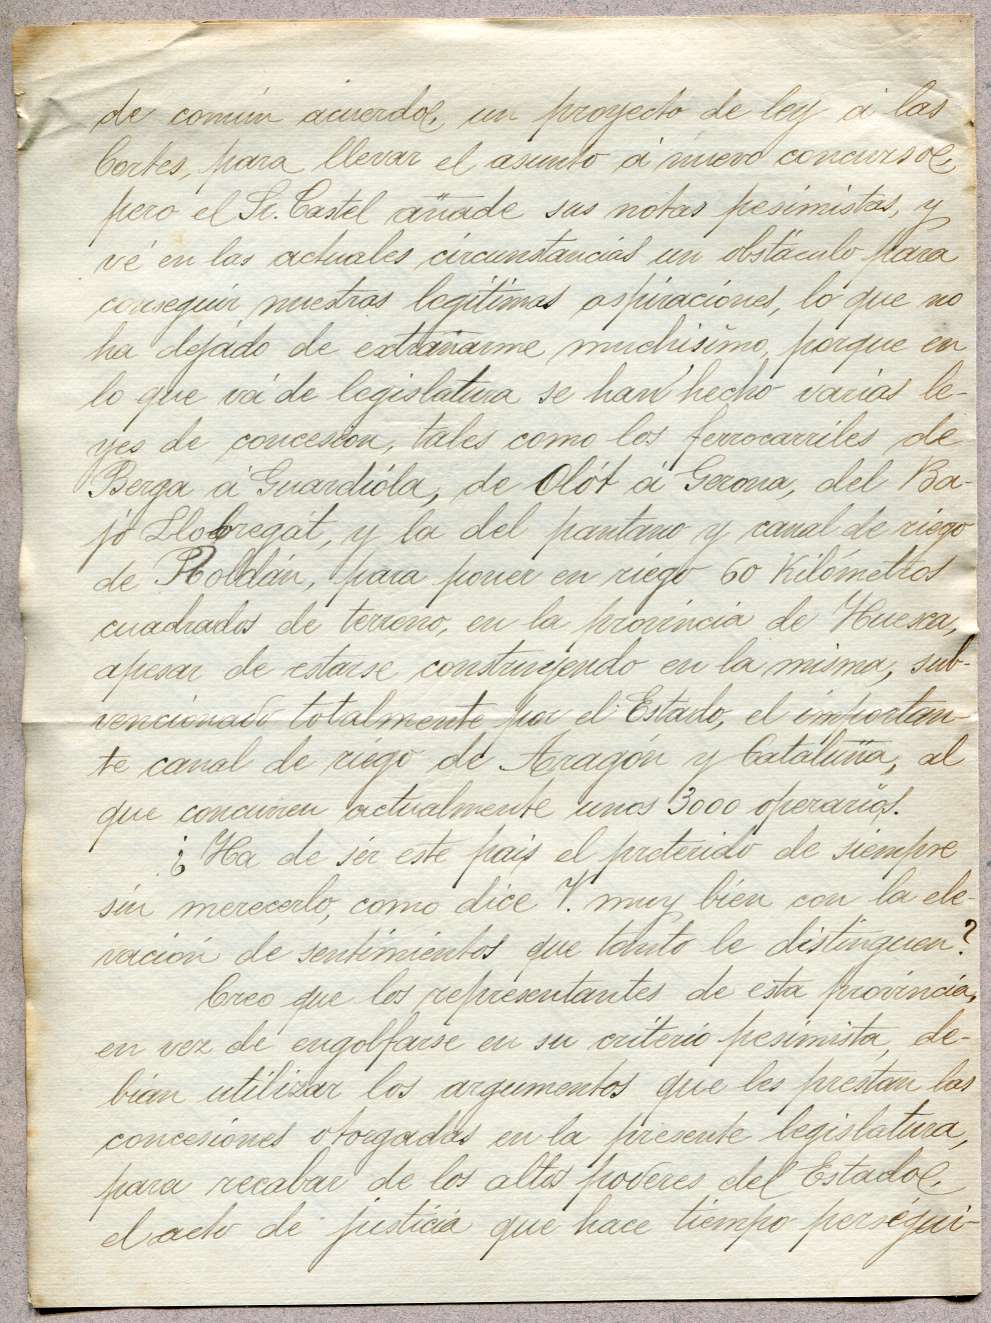 de común acuerdo, un proyecto de ley á las
Cortes, para llevar el asunto á nuevo concurso,
pero el Sr. Castel añade sus notas pesimistas, y
vé en las actuales circunstancias un obstáculo para
conseguir nuestras legítimas aspiraciones, lo que no
ha dejado de extrañarme muchisimo, porque en
lo que vá de legislatura se han hecho varias le-
yes de concesion, tales como los ferrocarriles de
Berga á Guardióla, de Olót á Gerona, del Ba-
jo Llobregát, y la del pantano y canal de riego
de Roldán, para poner en riego 60 Kilómetros
cuadrados de terreno, en la provincia de Huesca,
apesar de estarse construyendo en la misma, sub-
vencionado totalmente por el Estado, el importan-
te canal de riego de Aragón y Cataluña, al
que concurren actualmente unos 3000 operarios.
¿Ha de sér este pais el preterido de siempre
sin merecerlo, como dice V. muy bien con la ele-
vación de sentimientos que tanto le distinguen?
Creo que los representantes de esta provincia,
en vez de engolfarse en su criterio pesimista, de-
bian utilizar los argumentos que les prestan las
concesiones otorgadas en la presente legislatura,
para recabar de los altos poderes del Estado,
el acto de justicia que hace tiempo persegui-